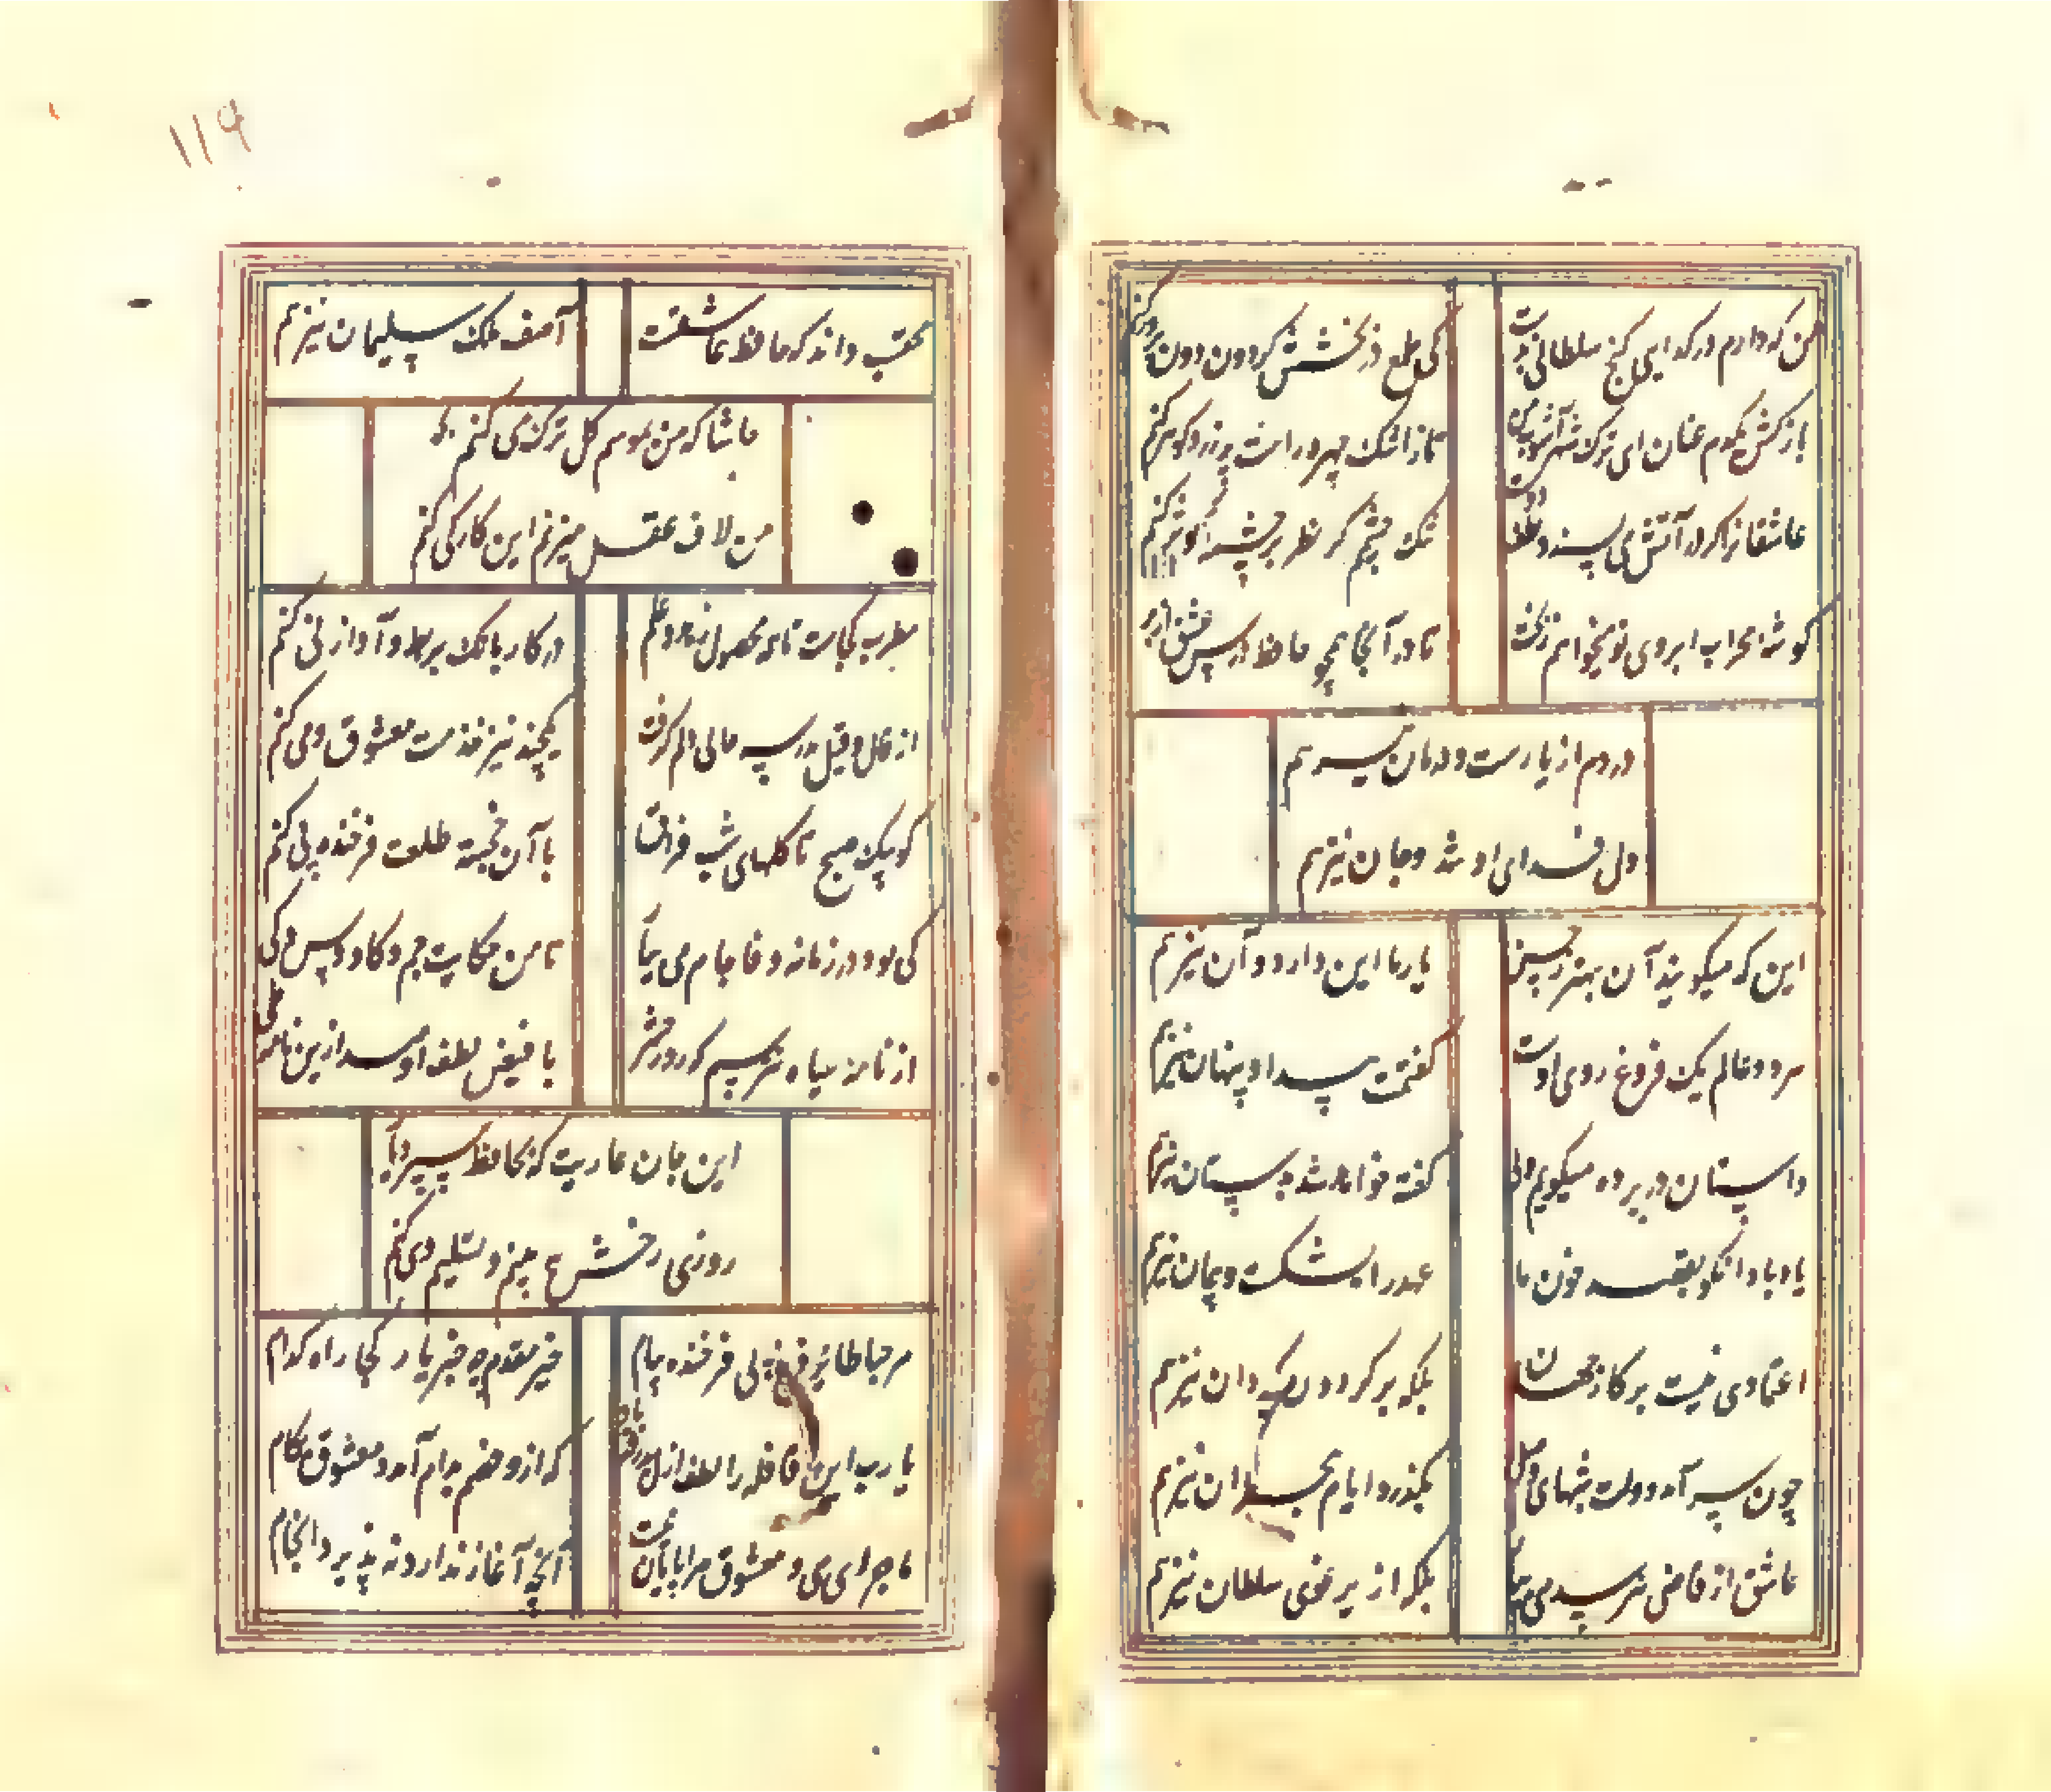 من که دارم در گدایی گنج سلطانی بدست
کی طمع در بخشش گردون دون پرور کنم
باز کش یکدم عنان ای ترک شهر آشوب من
تا ز اشک چهره راهت پر زر و گوهر کنم
عاشقانرا گر در آتش می پسندد لطف دوست
تنگ چشمم گر نظر بر چشمه کوثر کنم
گوشه محراب ابروی تو میخواهم ز بخت
تا در آنجا همچو حافظ درس عشق از بر
دردم از یارست و درمان نیز هم
دل فدای او شد و جان نیز هم
این که میگویند آن بهتر ز حسن
یار ما این دارد و آن نیز هم
هر دو عالم یک فروغ روی اوست
گفتمت پیدا و پنهان نیز هم
داستان در پرده میگویم ولی
گفته خواهد شد بدستان نیز هم
یاد باد آنکو بقصد خون ما
عهد را بشکست و پیمان نیز هم
اعتمادی نیست بر کار جهان
بلکه بر گردون گردان نیز هم
چون سر آمد دولت شبهای وصل
بگذرد ایام هجران نیز هم
عاشق از قاضی نترسد می بیار
بلکه از یرغوی سلطان نیز هم
۱۱۹
محتسب داند که حافظ عاشقست
آصف ملک سلیمان نیز هم
حاشا که من بموسم گل ترک می کنم
من لاف عقل میزنم این کار کی کنم
مطرب کجاست تا همه محصول زهد و علم
در کار بانگ بربط و آواز نی کنم
از قال و قیل مدرسه حالی دلم گرفت
یکچند نیز خدمت معشوق و می کنم
کو پیک صبح تا گلهای شب فراق
با آن خجسته طلعت فرخنده پی کنم
کی بود در زمانه وفا جام می بیا
تا من حکایت جم و کاوس و کی
از نامه سیاه نترسم که روز حشر
با فیض لطف او صد ازین نامه طی
این جان عاریت که بحافظ سپرد یا
روزی رخش ببینم و تسلیم وی کنم
مرحبا طایر فرخ پی فرخنده پیام
خیر مقدم چه خبر یار کجا راه کدام
یارب این قافله را لطف ازل بدرقه باد
که ازو خصم بدام آمد و معشوق بکام
ماجرای می و معشوق مرا پایان نیست
آنچه آغاز ندارد نه پذیرد انجام